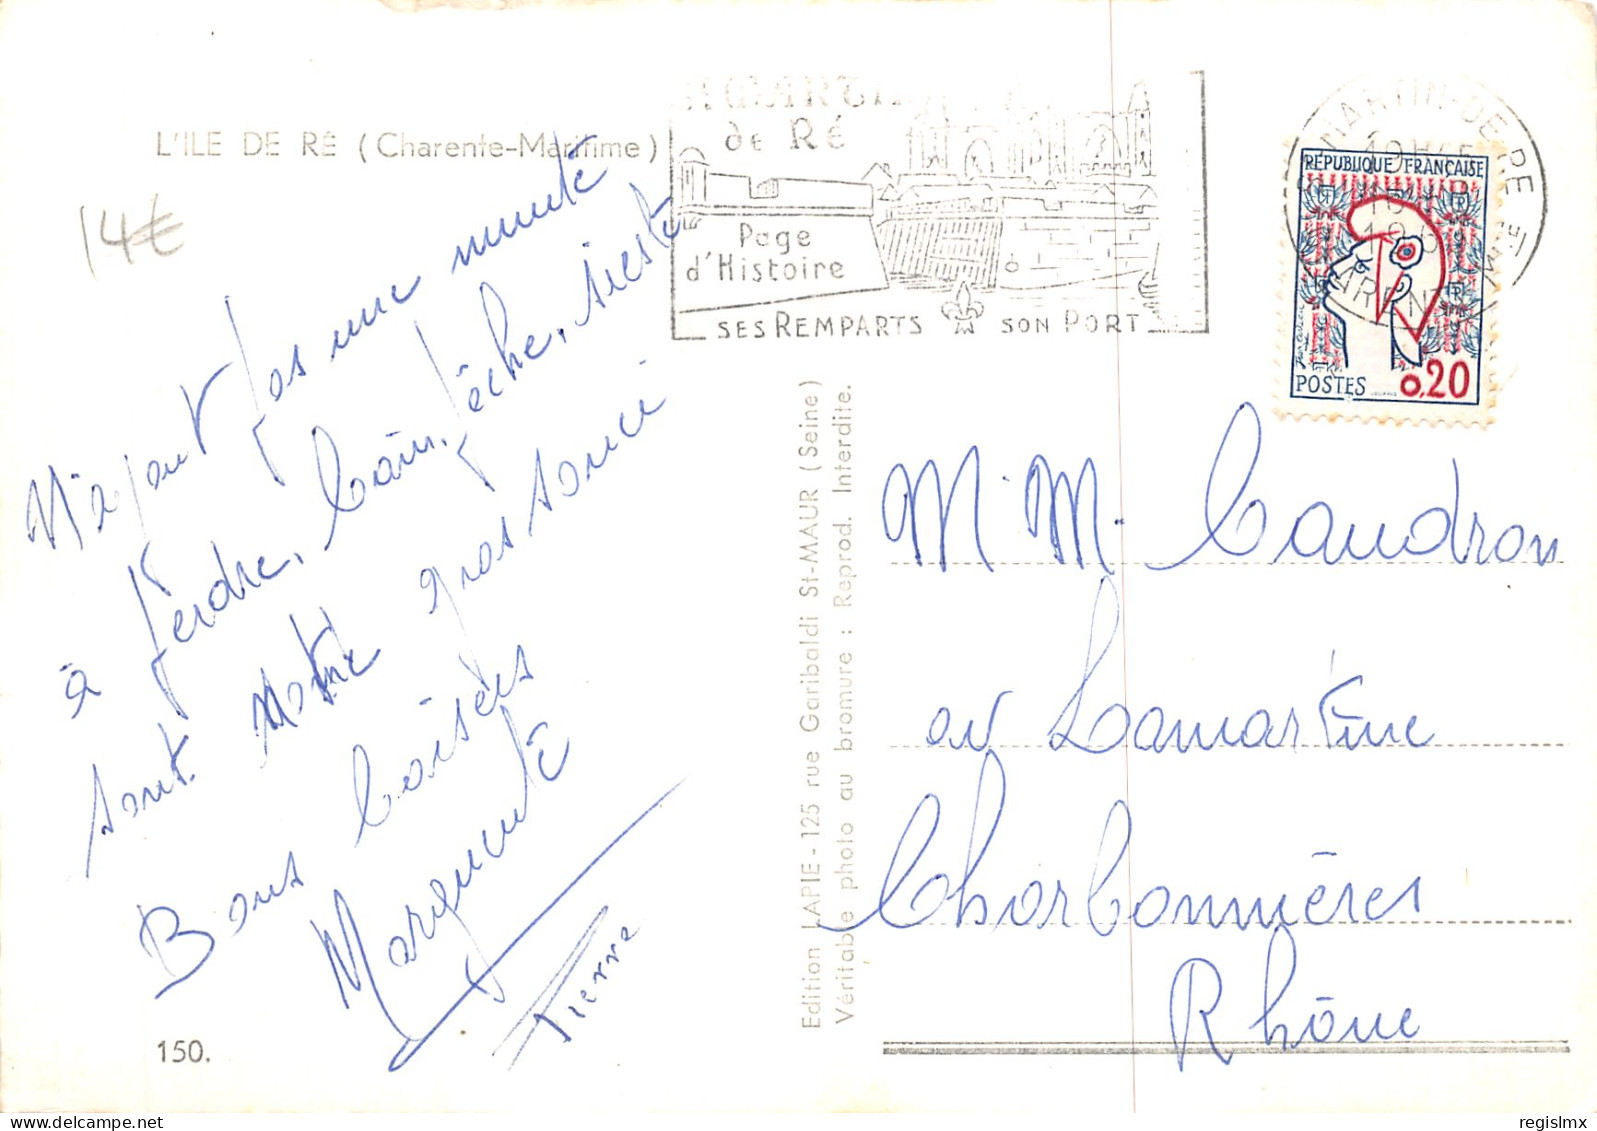 L'ILE DE RÉ (Charente-Maritime)
14€
N'ayant pas une minute
à perdre, bain, pêche, sieste
sont notre gros souci
Bons baisers
Marguerite
Pierre
150.
ST MARTIN
de RÉ
Page
d'Histoire
SES REMPARTS SON PORT
MARTIN-DE-RE
RÉPUBLIQUE FRANÇAISE
POSTES 0,20
Edition LAPIE - 125 rue Garibaldi St-MAUR (Seine)
Véritable photo au bromure : Reprod. Interdite.
M. M. Caudron
av Lamartine
Charbonnières
Rhône
regislmx